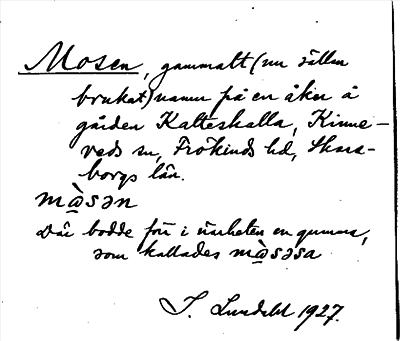 Mosen, gammalt (nu sällan
brukat) namn på en åker å
gården Kalteskalla, Kinne-
veds sn, Frökinds hd, Skara-
borgs län.
mạ̀sən
Där bodde förr i närheten en gumma,
som kallades mạ̀səsa
S. Lundahl 1927.